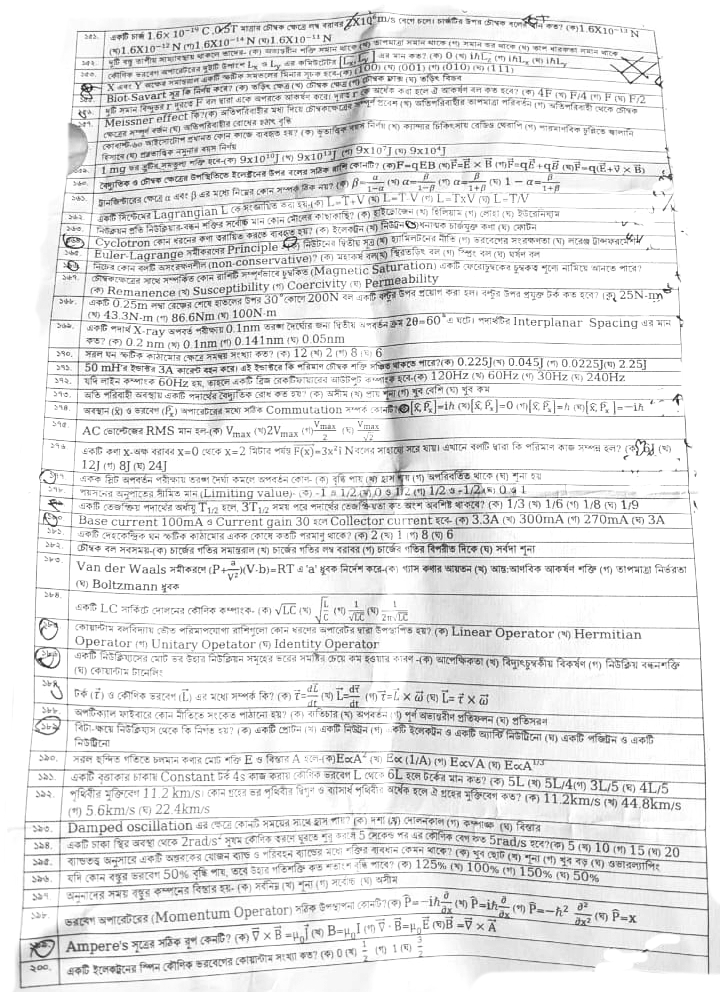 ১৫১. একটি চার্জ 1.6× 10⁻¹⁹ C ,0.5T মাত্রার চৌম্বক ক্ষেত্রে লম্ব বরাবর 2X10⁶m/s বেগে চলে। চার্জটির উপর চৌম্বক বলের মান কত? (ক)1.6X10⁻¹³ N
(খ)1.6X10⁻¹² N (গ)1.6X10⁻¹⁴ N (ঘ)1.6X10⁻¹¹ N
১৫২. দুটি বস্তু তাপীয় সাম্যাবস্থায় থাকলে তাদের- (ক) অভ্যন্তরীণ শক্তি সমান থাকে (খ) তাপমাত্রা সমান থাকে (গ) সমান ভর থাকে (ঘ) তাপ ধারকতা সমান থাকে
১৫৩. কৌণিক ভরবেগ অপারেটরের দুইটি উপাংশ Lₓ ও L_y এর কমিউটেটর [Lₓ, L_y] এর মান কত? (ক) 0 (খ) iħL_z (গ) iħLₓ (ঘ) iħL_y
X এবং Y অক্ষের সমান্তরাল একটি স্ফটিক সমতলের মিলার সূচক হবে-(ক) (100) (খ) (001) (গ) (010) (ঘ) (111)
Biot-Savart সূত্র কি নির্ণয় করে? (ক) তড়িৎ ক্ষেত্র (খ) চৌম্বক ক্ষেত্র (গ) চৌম্বক ফ্লাক্স (ঘ) তড়িৎ বিভব
দুটি সমান বিন্দুভর r দূরত্বে F বল দ্বারা একে অপরকে আকর্ষণ করে। দূরত্ব r কে অর্ধেক করা হলে ঐ আকর্ষণ বল কত হবে? (ক) 4F (খ) F/4 (গ) F (ঘ) F/2
১৫৭. Meissner effect কি?(ক) অতিপরিবাহীর মধ্য দিয়ে চৌম্বকক্ষেত্রের সম্পূর্ণ প্রবেশ (খ) অতিপরিবাহীর তাপমাত্রা পরিবর্তন (গ) অতিপরিবাহী থেকে চৌম্বক
ক্ষেত্রের সম্পূর্ণ বর্জন (ঘ) অতিপরিবাহীর রোধের হঠাৎ বৃদ্ধি
কোবাল্ট-৬০ আইসোটোপ প্রধানত কোন কাজে ব্যবহৃত হয়? (ক) ভূতাত্ত্বিক বয়স নির্ণয় (খ) ক্যান্সার চিকিৎসায় রেডিও থেরাপি (গ) পারমাণবিক চুল্লিতে জ্বালানি
হিসাবে (ঘ) প্রত্নতাত্ত্বিক নমুনার বয়স নির্ণয়
১৫৯. 1 mg ভর তুটির সমতুল্য শক্তি হবে-(ক) 9x10¹⁰J (খ) 9x10¹³J (গ) 9x10⁷J (ঘ) 9x10⁴J
১৬০. বৈদ্যুতিক ও চৌম্বক ক্ষেত্রের উপস্থিতিতে ইলেক্ট্রনের উপর বলের সঠিক রাশি কোনটি? (ক)F=qEB (খ)F⃗=E⃗ × B⃗ (গ)F⃗=qE⃗ + qB⃗ (ঘ)F⃗=q(E⃗+v⃗ × B⃗)
১৬১. ট্রানজিস্টরের ক্ষেত্রে α এবং β এর মধ্যে নিম্নের কোন সম্পর্ক ঠিক নয়? (ক) β=α/(1−α) (খ) α=β/(1−β) (গ) α=β/(1+β) (ঘ) 1 − α=β/(1+β)
১৬২. একটি সিস্টেমের Lagrangian L কে সংজ্ঞায়িত করা হয়-(ক) L=T+V (খ) L=T-V (গ) L=TxV (ঘ) L=T/V
১৬৩. নিউক্লিয়ন প্রতি নিউক্লিয়ার-বন্ধন শক্তির সর্বোচ্চ মান কোন মৌলের কাছাকাছি? (ক) হাইড্রোজেন (খ) হিলিয়াম (গ) লোহা (ঘ) ইউরেনিয়াম
Cyclotron কোন ধরনের কণা ত্বরান্বিত করতে ব্যবহৃত হয়? (ক) ইলেকট্রন (খ) নিউট্রন (গ) ধনাত্মক চার্জযুক্ত কণা (ঘ) ফোটন
১৬৫. Euler-Lagrange সমীকরণের Principle (ক) নিউটনের দ্বিতীয় সূত্র (খ) হ্যামিলটনের নীতি (গ) ভরবেগের সংরক্ষণতা (ঘ) লরেঞ্জ ট্রান্সফরমেশন
নিচের কোন বলটি অসংরক্ষণশীল (non-conservative)? (ক) মহাকর্ষ বল (খ) স্থিরতড়িৎ বল (গ) স্প্রিং বল (ঘ) ঘর্ষণ বল
১৬৭. চৌম্বকক্ষেত্রের সাথে সম্পর্কিত কোন রাশিটি সম্পূর্ণভাবে চুম্বকিত (Magnetic Saturation) একটি ফেরোচুম্বকের চুম্বকত্ব শূন্যে নামিয়ে আনতে পারে?
(ক) Remanence (খ) Susceptibility (গ) Coercivity (ঘ) Permeability
১৬৮. একটি 0.25m লম্বা রেঞ্চের শেষে হাতলের উপর 30° কোণে 200N বল একটি বল্টুর উপর প্রয়োগ করা হল। বল্টুর উপর প্রযুক্ত টর্ক কত হবে? (ক) 25N-m
(খ) 43.3N-m (গ) 86.6Nm (ঘ) 100N-m
১৬৯. একটি পদার্থ X-ray অপবর্ত পরীক্ষায় 0.1nm তরঙ্গ দৈর্ঘ্যের জন্য দ্বিতীয় অপবর্তন ক্রম 2θ=60° এ ঘটে। পদার্থটির Interplanar Spacing এর মান
কত? (ক) 0.2 nm (খ) 0.1nm (গ) 0.141nm (ঘ) 0.05nm
১৭০. সরল ঘন স্ফটিক কাঠামোর ক্ষেত্রে সমন্বয় সংখ্যা কত? (ক) 12 (খ) 2 (গ) 8 (ঘ) 6
১৭১. 50 mH'র ইন্ডাক্টর 3A কারেন্ট বহন করে। এই ইন্ডাক্টরে কি পরিমাণ চৌম্বক শক্তি সঞ্চিত থাকতে পারে?(ক) 0.225J(খ) 0.045J (গ) 0.0225J(ঘ) 2.25J
১৭২. যদি লাইন কম্পাংক 60Hz হয়, তাহলে একটি ব্রিজ রেকটিফায়ারের আউটপুট কম্পাংক হবে-(ক) 120Hz (খ) 60Hz (গ) 30Hz (ঘ) 240Hz
১৭৩. অতি পরিবাহী অবস্থায় একটি পদার্থের বৈদ্যুতিক রোধ কত হয়? (ক) অসীম (খ) প্রায় শূন্য (গ) খুব বেশি (ঘ) খুব কম
১৭৪. অবস্থান (x̂) ও ভরবেগ (P̂ₓ) অপারেটরের মধ্যে সঠিক Commutation সম্পর্ক কোনটি? (ক)[x̂, P̂ₓ]=iħ (খ)[x̂, P̂ₓ]=0 (গ)[x̂, P̂ₓ]=ħ (ঘ)[x̂, P̂ₓ]=−iħ
১৭৫. AC ভোল্টেজের RMS মান হল-(ক) V_max (খ)2V_max (গ)V_max/2 (ঘ) V_max/√2
১৭৬. একটি কণা x-অক্ষ বরাবর x=0 থেকে x=2 মিটার পর্যন্ত F(x)=3x²i N বলের সাহায্যে সরে যায়। এখানে বলটি দ্বারা কি পরিমান কাজ সম্পন্ন হল? (ক) J (খ)
12J (গ) 8J (ঘ) 24J
১৭৭. একক স্লিট অপবর্তন পরীক্ষায় তরঙ্গ দৈর্ঘ্য কমলে অপবর্তন কোন- (ক) বৃদ্ধি পায় (খ) হ্রাস পায় (গ) অপরিবর্তিত থাকে (ঘ) শূন্য হয়
১৭৮. পয়সনের অনুপাতের সীমিত মান (Limiting value)- (ক) -1 ও 1/2 (খ) 0 ও 1/2 (গ) 1/2 ও -1/2 (ঘ) 0 ও 1
একটি তেজস্ক্রিয় পদার্থের অর্ধায়ু T₁/₂ হলে, 3T₁/₂ সময় পরে পদার্থের তেজস্ক্রিয়তা কত অংশ অবশিষ্ট থাকবে? (ক) 1/3 (খ) 1/6 (গ) 1/8 (ঘ) 1/9
১৮০. Base current 100mA ও Current gain 30 হলে Collector current হবে- (ক) 3.3A (খ) 300mA (গ) 270mA (ঘ) 3A
১৮১. একটি দেহকেন্দ্রিক ঘন স্ফটিক কাঠামোর একক কোষে কতটি পরমাণু থাকে? (ক) 2 (খ) 1 (গ) 8 (ঘ) 6
১৮২. চৌম্বক বল সবসময়-(ক) চার্জের গতির সমান্তরাল (খ) চার্জের গতির লম্ব বরাবর (গ) চার্জের গতির বিপরীত দিকে (ঘ) সর্বদা শূন্য
১৮৩. Van der Waals সমীকরণে (P+a/V²)(V-b)=RT এ 'a' ধ্রুবক নির্দেশ করে-(ক) গ্যাস কণার আয়তন (খ) আন্ত:আণবিক আকর্ষণ শক্তি (গ) তাপমাত্রা নির্ভরতা
(ঘ) Boltzmann ধ্রুবক
১৮৪. একটি LC সার্কিটে দোলনের কৌণিক কম্পাংক- (ক) √LC (খ) √(L/C) (গ) 1/√LC (ঘ) 1/(2π√LC)
১৮৫. কোয়ান্টাম বলবিদ্যায় ভৌত পরিমাপযোগ্য রাশিগুলো কোন ধরনের অপারেটর দ্বারা উপস্থাপিত হয়? (ক) Linear Operator (খ) Hermitian
Operator (গ) Unitary Opetator (ঘ) Identity Operator
১৮৬. একটি নিউক্লিয়াসের মোট ভর উহার নিউক্লিয়ন সমূহের ভরের সমষ্টির চেয়ে কম হওয়ার কারণ -(ক) আপেক্ষিকতা (খ) বিদ্যুৎচুম্বকীয় বিকর্ষণ (গ) নিউক্লিয় বন্ধনশক্তি
(ঘ) কোয়ান্টাম টানেলিং
১৮৭. টর্ক (τ⃗) ও কৌণিক ভরবেগ (L⃗) এর মধ্যে সম্পর্ক কি? (ক) τ⃗=dL⃗/dt (খ) L⃗=dτ⃗/dt (গ) τ⃗=L⃗ × ω⃗ (ঘ) L⃗= τ⃗ × ω⃗
১৮৮. অপটিক্যাল ফাইবারে কোন নীতিতে সংকেত পাঠানো হয়? (ক) ব্যতিচার (খ) অপবর্তন (গ) পূর্ণ অভ্যন্তরীণ প্রতিফলন (ঘ) প্রতিসরণ
১৮৯. বিটা-ক্ষয়ে নিউক্লিয়াস থেকে কি নির্গত হয়? (ক) একটি প্রোটন (খ) একটি নিউট্রন (গ) একটি ইলেকট্রন ও একটি অ্যান্টি নিউট্রিনো (ঘ) একটি পজিট্রন ও একটি
নিউট্রিনো
১৯০. সরল ছন্দিত গতিতে চলমান কণার মোট শক্তি E ও বিস্তার A হলে-(ক)E∝A² (খ) E∝ (1/A) (গ) E∝√A (ঘ) E∝A¹/³
১৯১. একটি বৃত্তাকার চাকায় Constant টর্ক 4s কাজ করায় কৌণিক ভরবেগ L থেকে 6L হলে টর্কের মান কত? (ক) 5L (খ) 5L/4(গ) 3L/5 (ঘ) 4L/5
১৯২. পৃথিবীর মুক্তিবেগ 11.2 km/s। কোন গ্রহের ভর পৃথিবীর দ্বিগুণ ও ব্যাসার্ধ পৃথিবীর অর্ধেক হলে ঐ গ্রহের মুক্তিবেগ কত? (ক) 11.2km/s (খ) 44.8km/s
(গ) 5.6km/s (ঘ) 22.4km/s
১৯৩. Damped oscillation এর ক্ষেত্রে কোনটি সময়ের সাথে হ্রাস পায়? (ক) দশা (খ) দোলনকাল (গ) কম্পাঙ্ক (ঘ) বিস্তার
১৯৪. একটি চাকা স্থির অবস্থা থেকে 2rad/s² সুষম কৌণিক ত্বরণে ঘুরতে শুরু করলে 5 সেকেন্ড পর এর কৌণিক বেগ কত 5rad/s হবে?(ক) 5 (খ) 10 (গ) 15 (ঘ) 20
১৯৫. ব্যান্ডতত্ত্ব অনুসারে একটি অন্তরকের যোজন ব্যান্ড ও পরিবহন ব্যান্ডের মধ্যে শক্তির ব্যবধান কেমন থাকে? (ক) খুব ছোট (খ) শূন্য (গ) খুব বড় (ঘ) ওভারল্যাপিং
১৯৬. যদি কোন বস্তুর ভরবেগ 50% বৃদ্ধি পায়, তবে উহার গতিশক্তি কত শতাংশ বৃদ্ধি পাবে? (ক) 125% (খ) 100% (গ) 150% (ঘ) 50%
১৯৭. অনুনাদের সময় বস্তুর কম্পনের বিস্তার হয়- (ক) সর্বনিম্ন (খ) শূন্য (গ) সর্বোচ্চ (ঘ) অসীম
১৯৮. ভরবেগ অপারেটরের (Momentum Operator) সঠিক উপস্থাপনা কোনটি?(ক) P̂=−iħ ∂/∂x (খ) P̂=iħ ∂/∂x (গ) P̂=−ħ² ∂²/∂x² (ঘ) P̂=x
১৯৯. Ampere's সূত্রের সঠিক রূপ কেনটি? (ক) ∇⃗ × B⃗ =μ₀J⃗ (খ) B=μ₀I (গ) ∇⃗ · B⃗=μ₀E⃗ (ঘ)B⃗ =∇⃗ × A⃗
২০০. একটি ইলেকট্রনের স্পিন কৌণিক ভরবেগের কোয়ান্টাম সংখ্যা কত? (ক) 0 (খ) 1/2 (গ) 1 (ঘ) 3/2